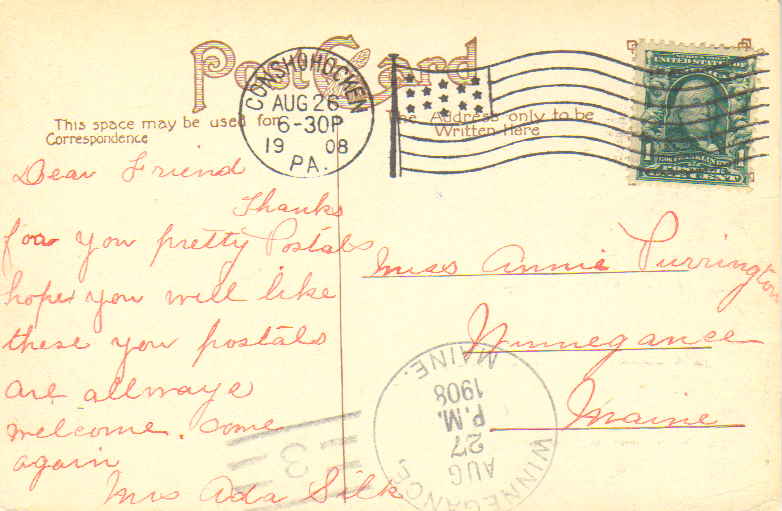 Post Card
CONSHOHOCKEN
AUG 26
6-30P
19 08
PA.
This space may be used for
Correspondence
The Address only to be
Written Here
Dear Friend
Thanks
for you pretty Postals
hope you will like
these you postals
are allways
welcome. Come
again
Mrs Ada Silk
Miss Annie Purrington
Winnegance
Maine
WINNEGANCE
MAINE.
AUG
27
P.M.
1908
3